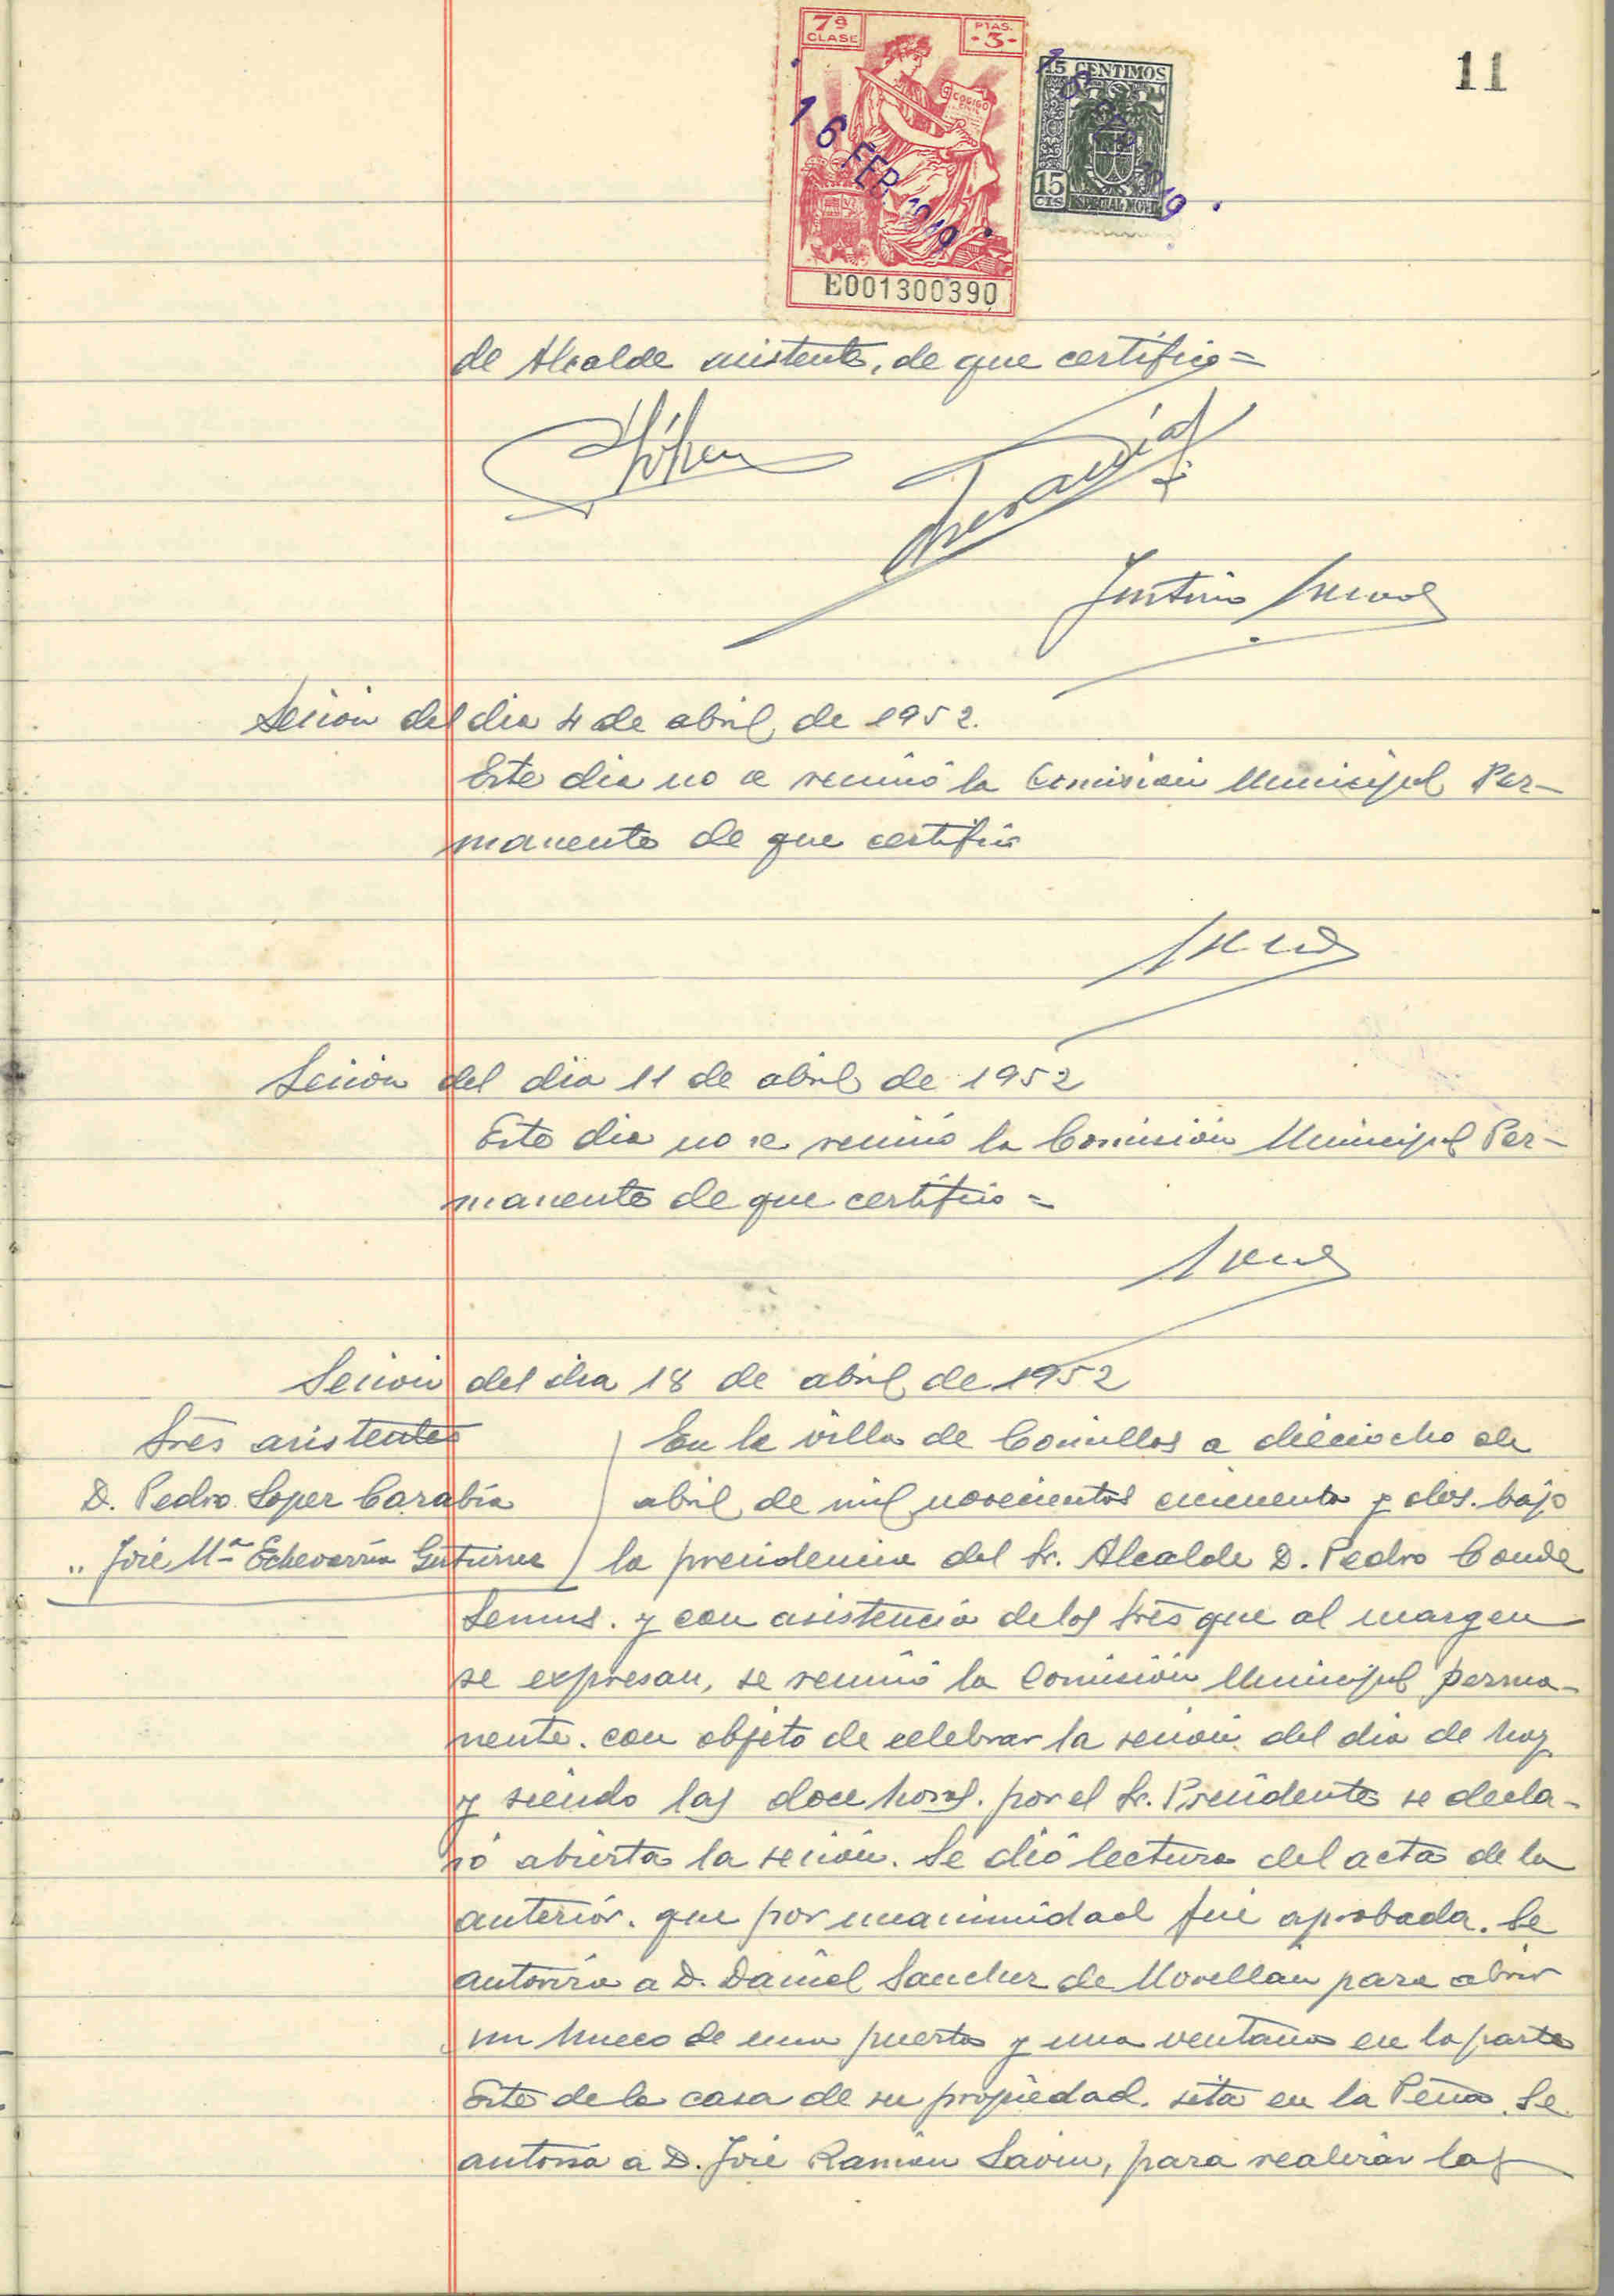 11
7ª CLASE
PTAS. -3-
CODIGO
16 FEB. 1949
E001300390
15 CENTIMOS
15 CTS
ESPECIAL MOVIL
de Alcalde asistente, de que certifico=
Justino
Sesión del dia 4 de abril de 1952.
Este dia no se reunió la Comision Municipal Per-
manente de que certifico
Sesión del dia 11 de abril de 1952
Este dia no se reunió la Comisión Municipal Per-
manente de que certifico=
Sesión del dia 18 de abril de 1952
Sres asistentes
D. Pedro Lopez Carabia
" José Mª Echevarría Gutierrez
En la villa de Comillas a dieciocho de
abril de mil novecientos cincuenta y dos. bajo
la presidencia del Sr. Alcalde D. Pedro Conde
Lemus. y con asistencia de los Sres que al margen
se expresan, se reunió la Comisión Municipal perma-
nente. con objeto de celebrar la sesión del dia de hoy
y siendo las doce horas. por el Sr. Presidente se decla-
ró abierta la sesión. Se dió lectura del acta de la
anterior. que por unanimidad fué aprobada. Se
autoriza a D. Daniel Sanchez de Movellán para abrir
un hueco de una puerta y una ventana en la parte
Este de la casa de su propiedad. sita en la Peña. Se
autoriza a D. José Ramón Savin, para realizar las